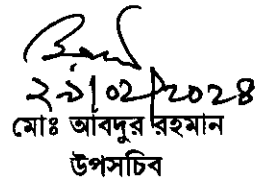 ২৯|০২|২০২৪
মোঃ আবদুর রহমান
উপসচিব